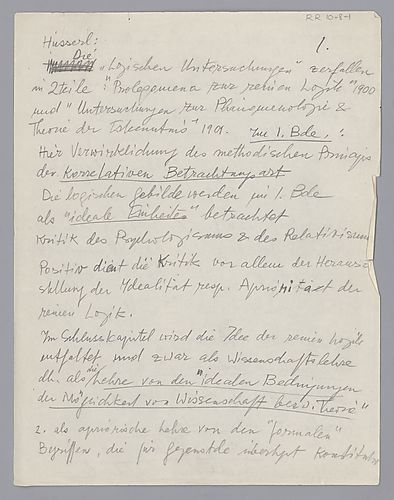 RR 10-8-1
1.
Husserl:
Die
"Logischen Untersuchungen" zerfallen
in 2 Teile: "Prolegomena zur reinen Logik" 1900
und "Untersuchungen zur Phänomenologie &
Theorie der Erkenntnis" 1901. Zu I. Bde.:
Hier Verwirklichung des methodischen Prinzips
der Korrelativen Betrachtungsart
Die logischen Gebilde werden im I. Bde
als "ideale Einheiten" betrachtet
Kritik des Psychologismus & des Relativismus
Positiv dient die Kritik vor allem der Heraus-
stellung der Idealität resp. Apriorität der
reinen Logik.
Im Schlusskapitel wird die Idee der reinen Logik
entfaltet und zwar als Wissenschaftslehre
dh. als die Lehre von den "idealen Bedingungen
der Möglichkeit von Wissenschaft bezw. Theorie"
2. als apriorische Lehre von den "formalen"
Begriffen, die für Gegenstände überhaupt konstitutiv